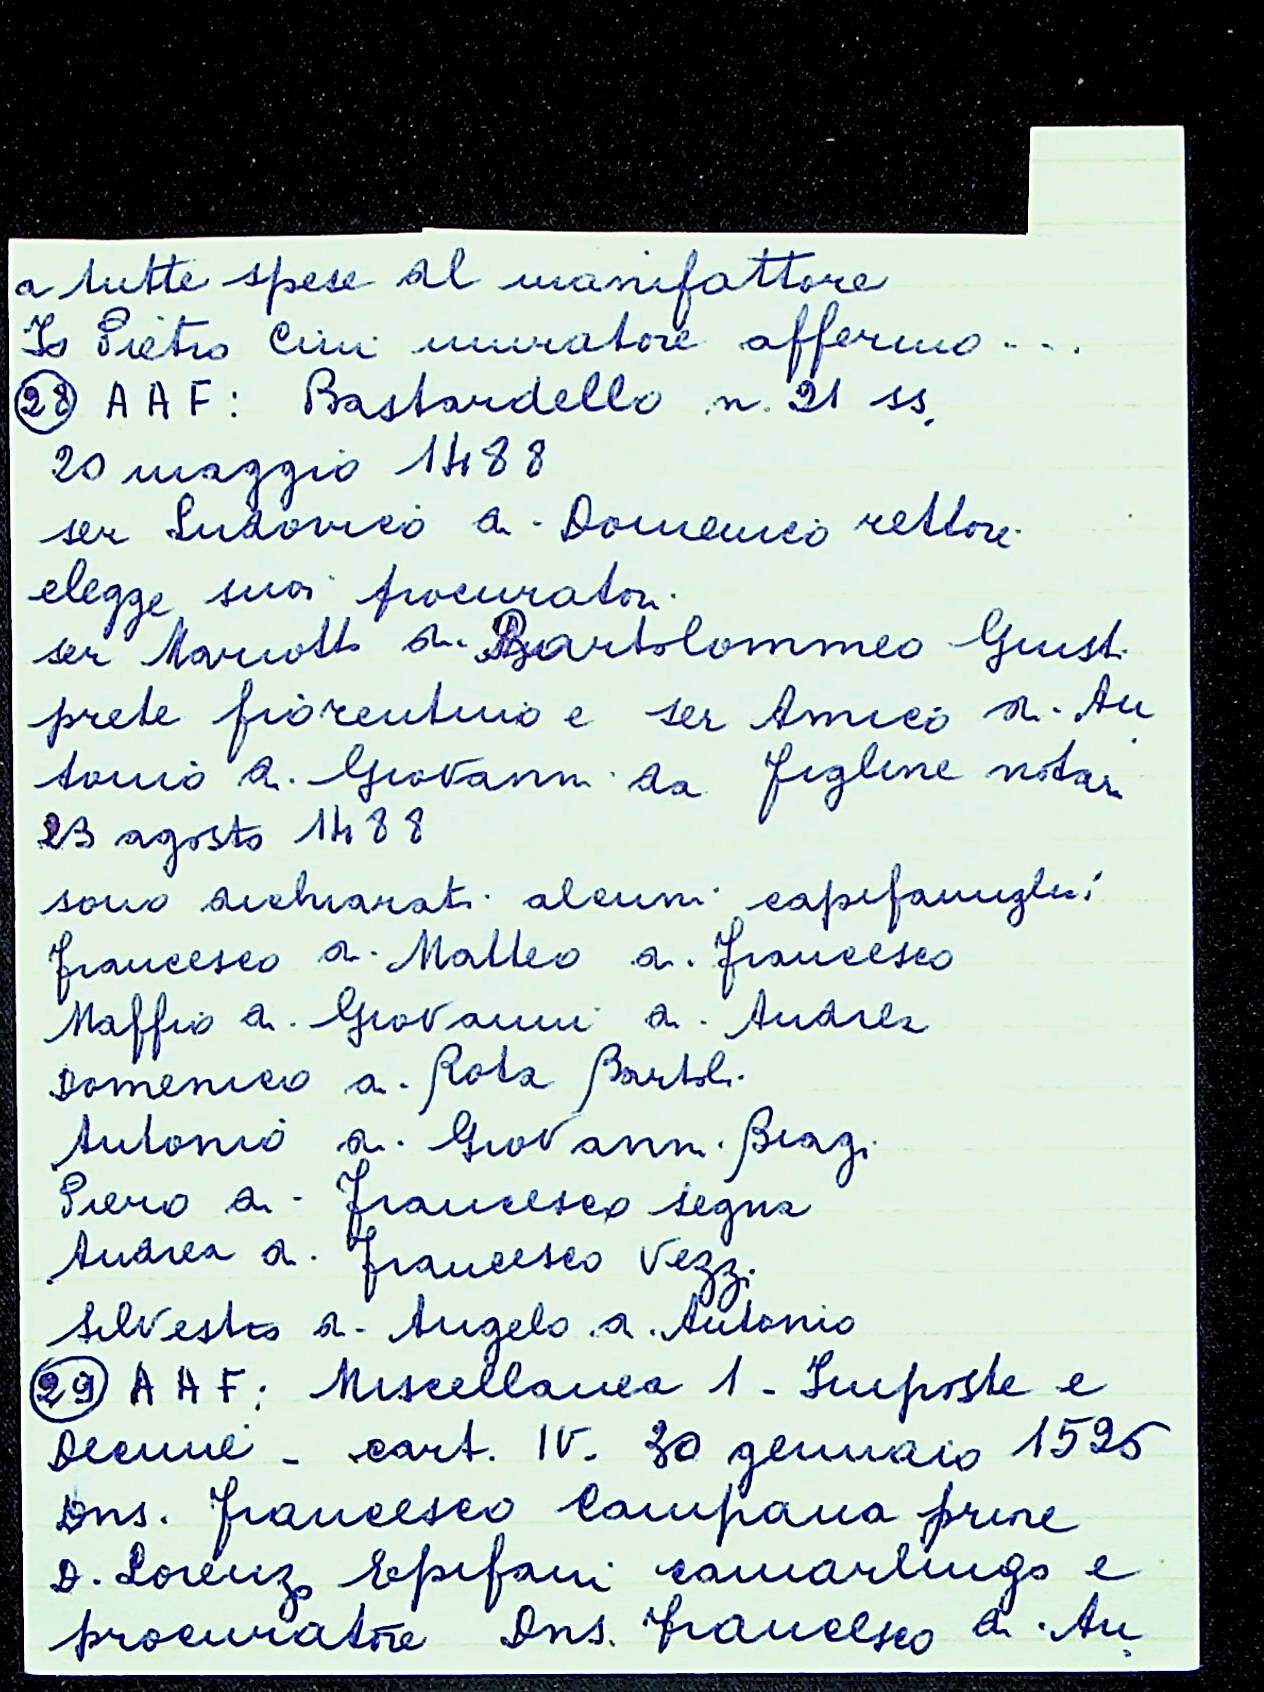 a tutte spese al manifattore
Io Pietro Cini muratore affermo ...
28 AAF: Bastardello n. 21 ss.
20 maggio 1488
ser Ludovico di Domenico rettore
elegge suoi procuratori
ser Mariotto di Bartolommeo Giusti
prete fiorentino e ser Amico di An
tonio di Giovanni da Figline notari
23 agosto 1488
sono dichiarati alcuni capifamiglia:
Francesco di Matteo di Francesco
Maffio di Giovanni di Andrea
Domenico di Rota Bartoli
Antonio di Giovanni Biagi
Piero di Francesco Segna
Andrea di Francesco Vezzi
Silvestro di Angelo di Antonio
29 AAF: Miscellanea 1 - Imposte e
Decime - cart. IV. 30 gennaio 1525
Dns. Francesco Campana
D. Lorenzo Epifani camarlingo e
procuratore Dns. Francesco di An